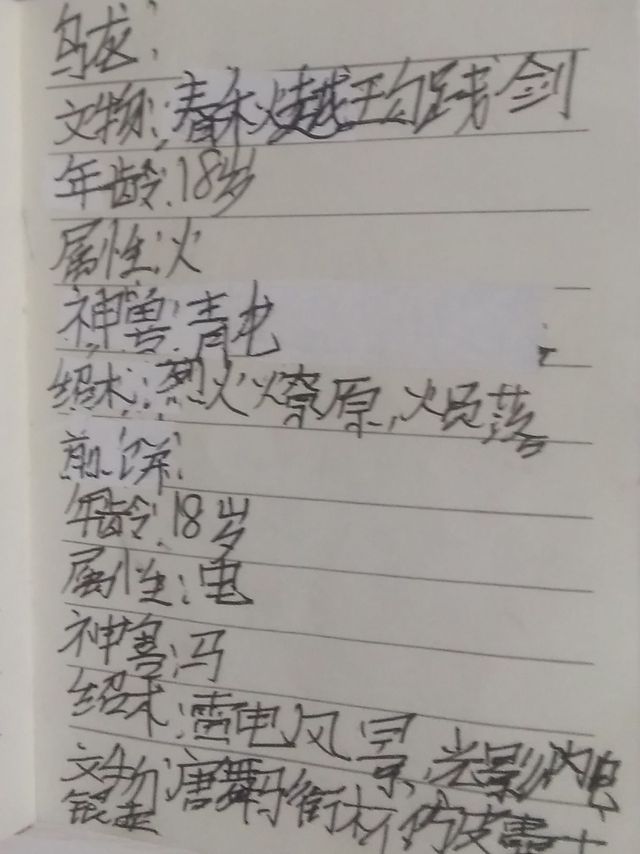 乌龙:
文物:春秋越王勾践剑
年龄:18岁
属性:火
神兽:青龙
绍术:烈火燎原,火
煎饼:
年龄:18岁
属性:电
神兽:马
绍术:雷电风,光影闪电
文物:唐舞马衔杯仿皮
银壶